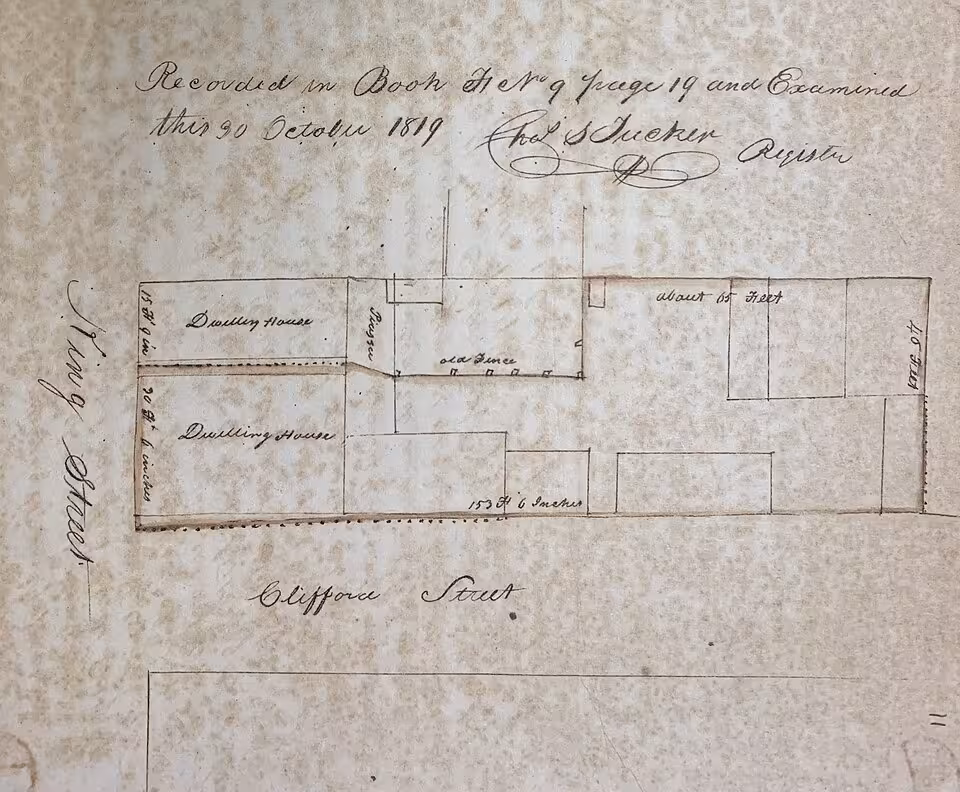 Recorded in Book F No 9 page 19 and Examined
this 30 October 1819 Chas S Tucker Register
King Street
15 Ft 9 in
Dwelling House
Piazza
old Fence
about 65 Feet
40 Feet
30 Ft 6 inches
Dwelling House
153 Ft 6 Inches
Clifford Street
11